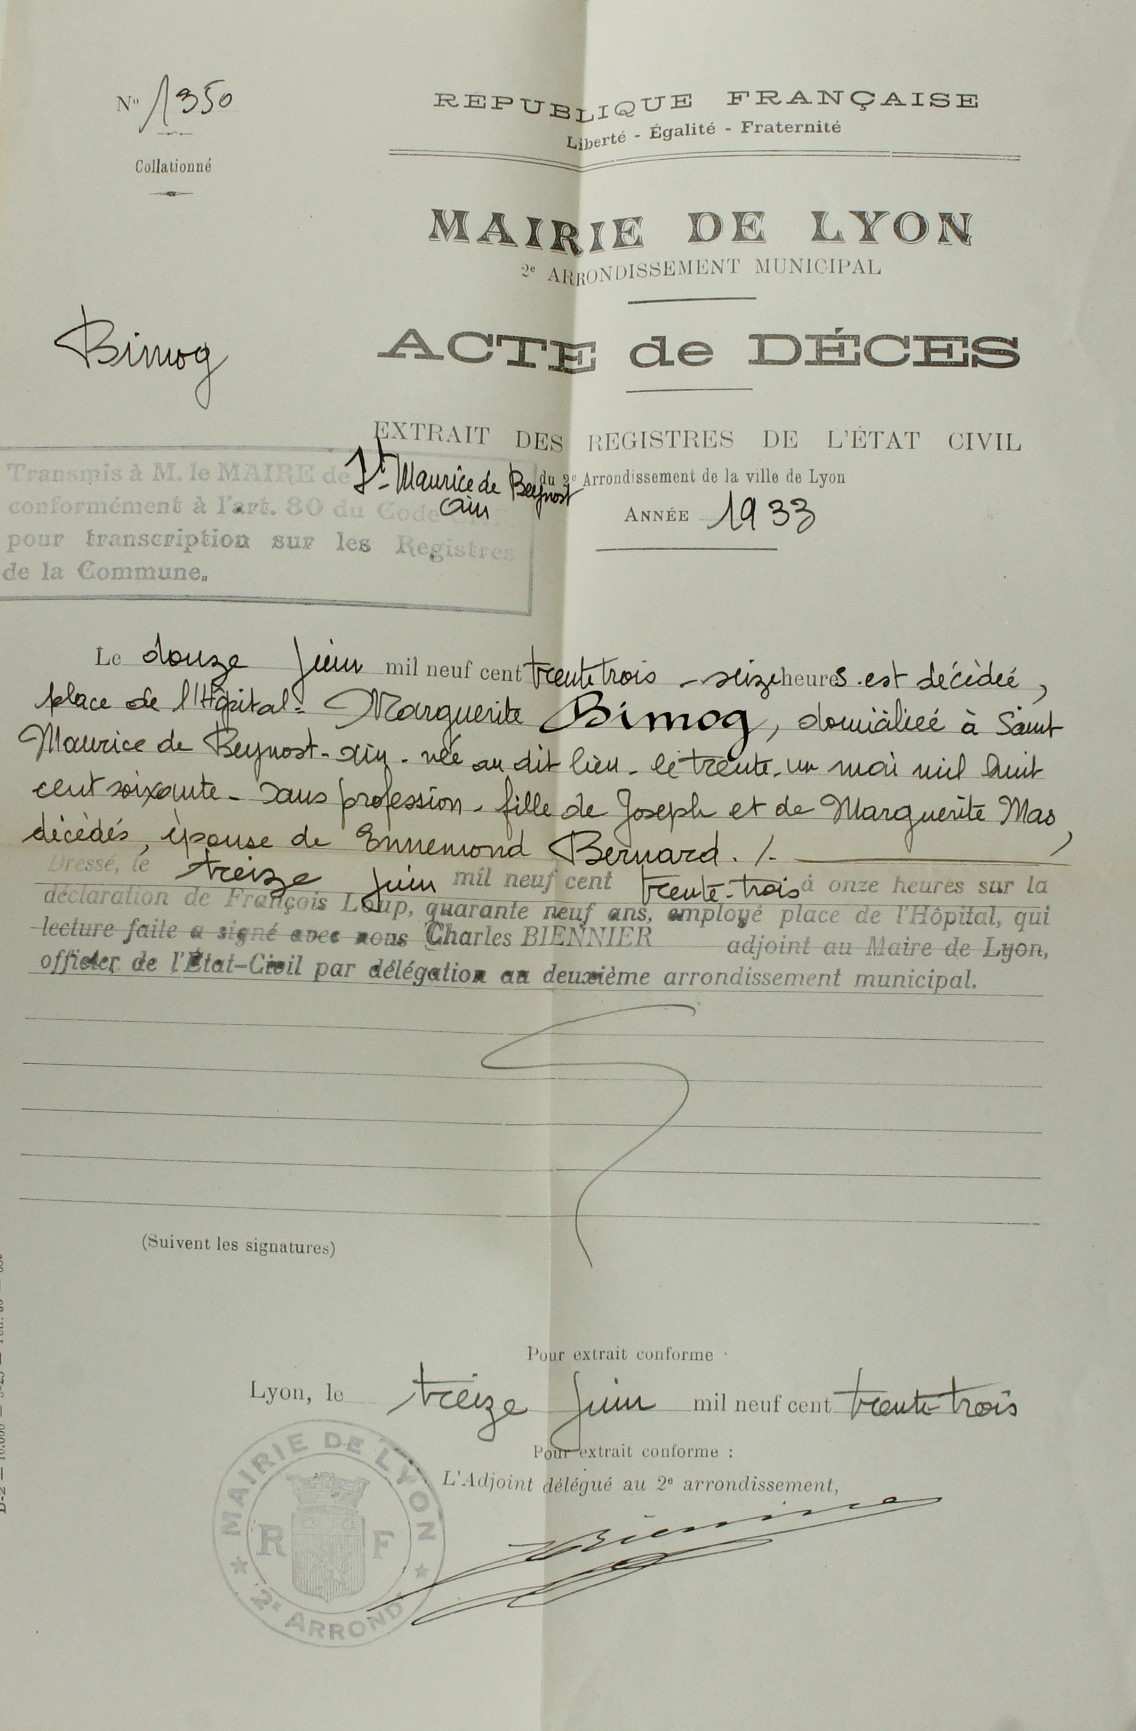 N° 1350
Collationné
RÉPUBLIQUE FRANÇAISE
Liberté - Égalité - Fraternité
MAIRIE DE LYON
2e ARRONDISSEMENT MUNICIPAL
Bimog
ACTE de DÉCES
EXTRAIT DES REGISTRES DE L'ÉTAT CIVIL
du 2e Arrondissement de la ville de Lyon
ANNÉE 1933
Transmis à M. le MAIRE de St. Maurice de Beynost
Ain
conformément à l'art. 80 du Code
pour transcription sur les Registres
de la Commune.
Le douze Juin mil neuf cent trente trois - seize heures est décèdeé,
place de l'Hôpital - Marguerite Bimog, domicilieé à Saint
Maurice de Beynost - Ain - née au dit lieu - le trente-un mai mil huit
cent soixante - sans profession - fille de Joseph et de Marguerite Mas,
décèdés, épouse de Ennemond Bernard. /-
Dressé, le treize Juin mil neuf cent trente-trois à onze heures sur la
déclaration de François Loup, quarante neuf ans, employé place de l'Hôpital, qui
lecture faite a signé avec nous Charles BIENNIER adjoint au Maire de Lyon,
officier de l'État-Civil par délégation au deuxième arrondissement municipal.
(Suivent les signatures)
Pour extrait conforme
Lyon, le treize Juin mil neuf cent trente-trois
Pour extrait conforme :
L'Adjoint délégué au 2e arrondissement,
MAIRIE DE LYON
R F
2e ARRONDt